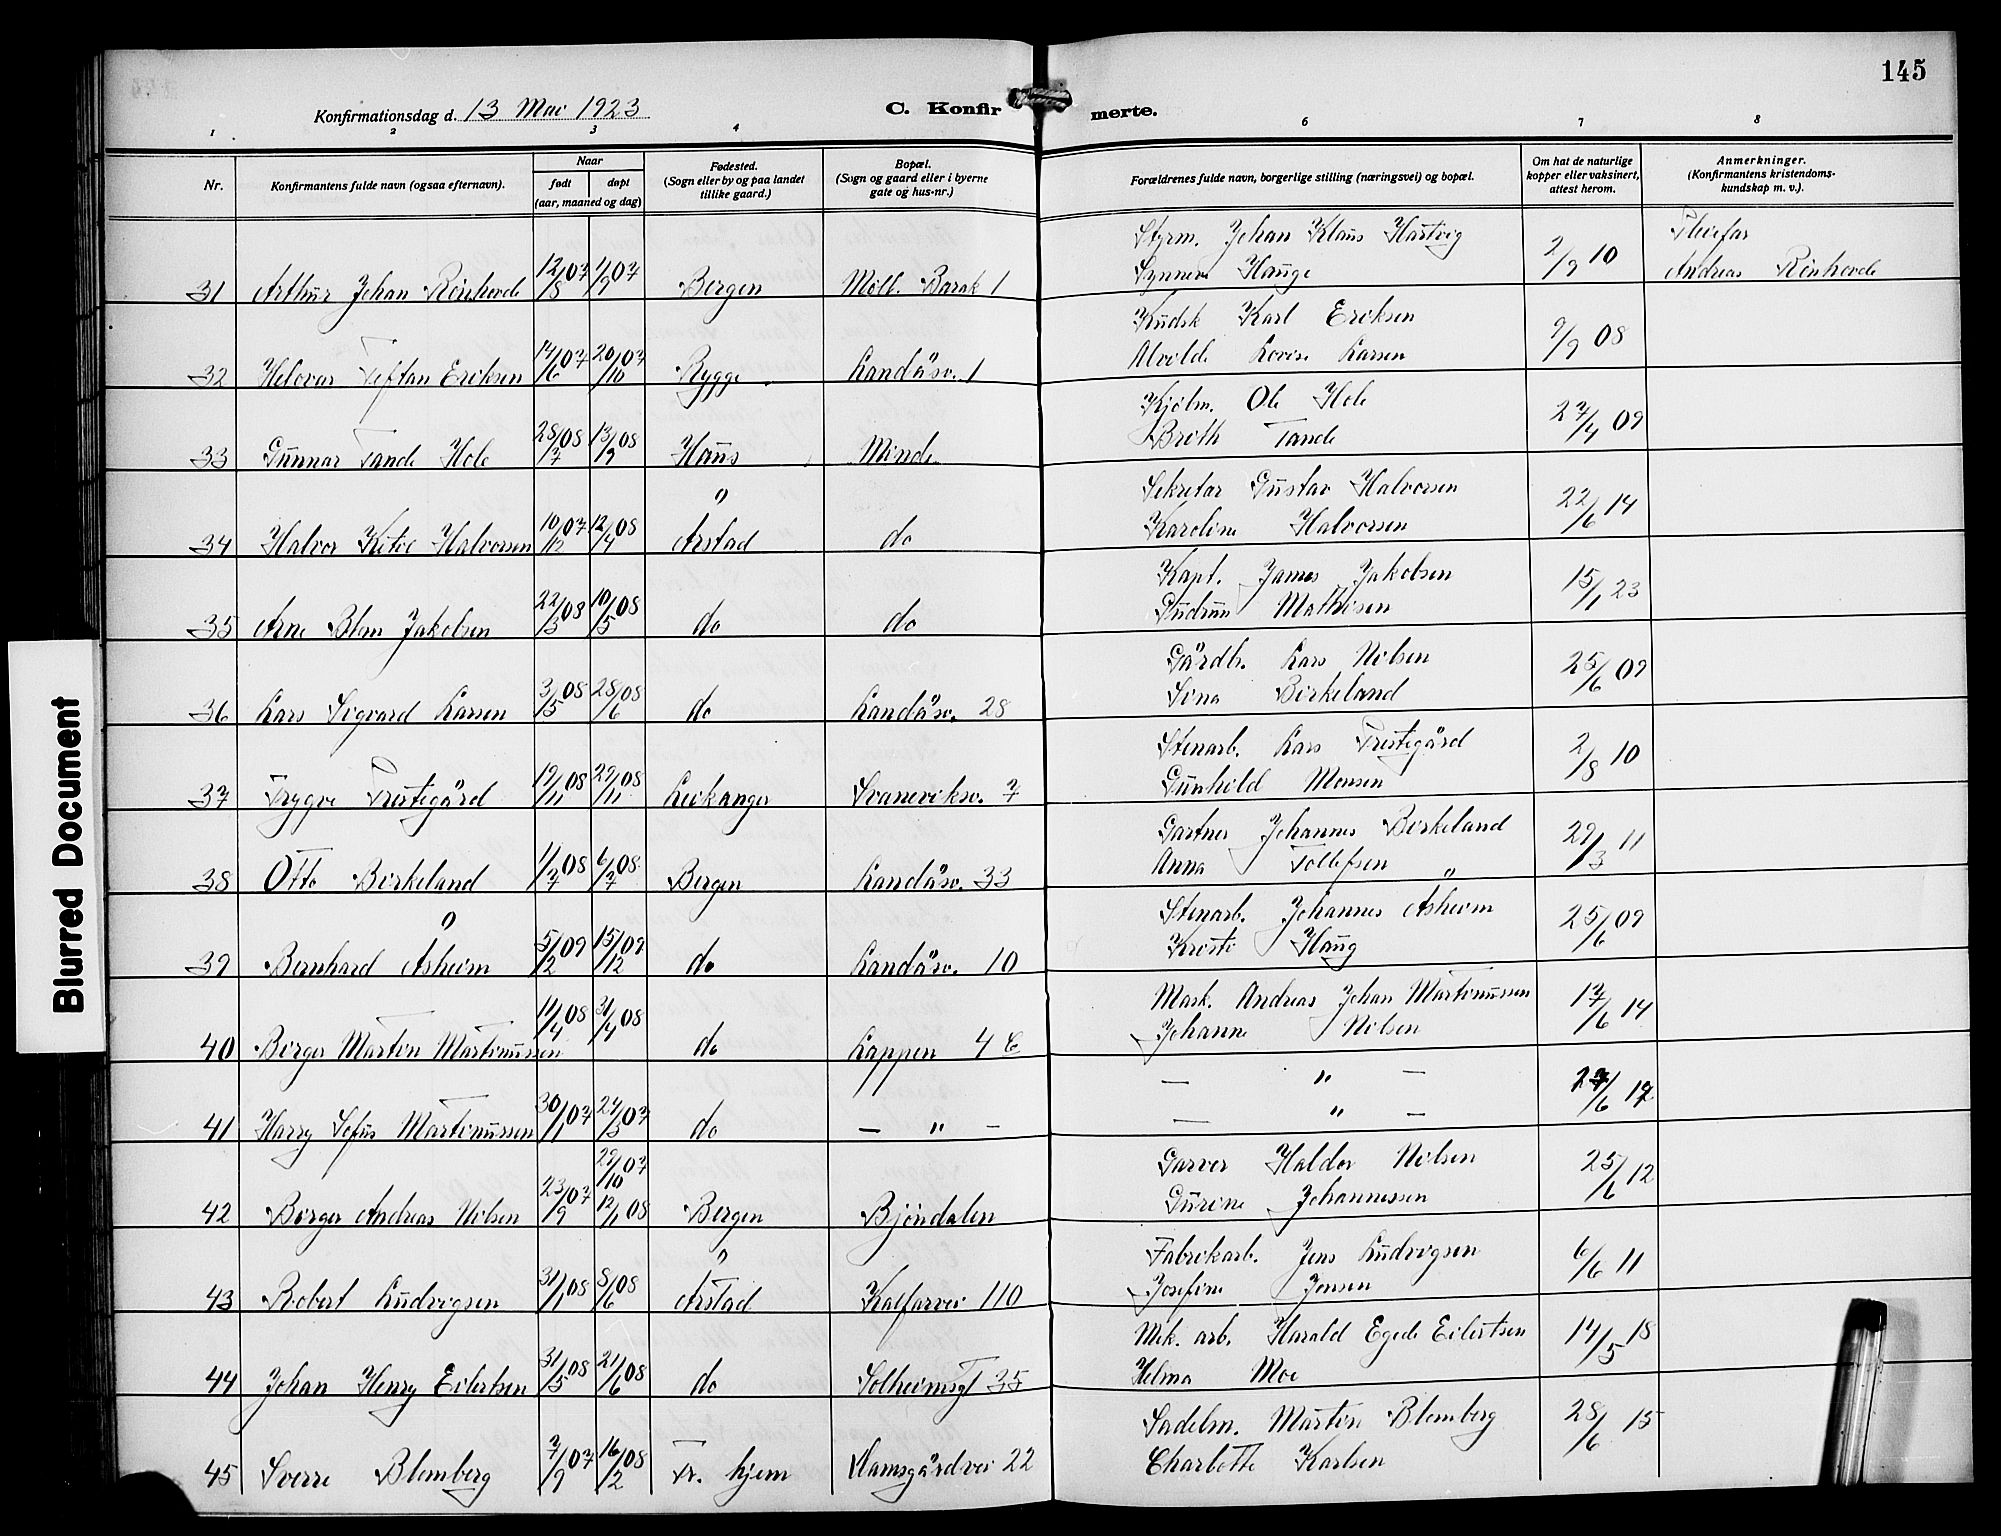 145
Konfirmationsdag d. 13 Mai 1923
C. Konfirmerte.
1 2 3 4 6 7 8
Nr.
Konfirmantens fulde navn (ogsaa efternavn).
Naar
født døpt
(aar, maaned og dag)
Fødested.
(Sogn eller by og paa landet
tillike gaard.)
Bopæl.
(Sogn og gaard eller i byerne
gate og hus-nr.)
Forældrenes fulde navn, borgerlige stilling (næringsvei) og bopæl.
Om hat de naturlige
kopper eller vaksinert,
attest herom.
Anmerkninger.
(Konfirmantens kristendoms-
kundskap m. v.).
Styrm. Johan Klaus Hartvig
31 Arthur Johan Rinhovde 12/8 07 1/9 07 Bergen Möll. Barak 1 Synneve Hauge 2/9 10 Pleiefar
Andreas Rinhovde
Kudsk Karl Eriksen
32 Helovar Teftan Eriksen 14/6 07 20/10 07 Rygge Landåsv. 1 Alvilde Lovise Larsen 9/9 08
Kjölm. Ole Hole
33 Gunnar Tande Hole 28/7 08 13/9 08 Haus Minde Brith Tande 27/4 09
Sekretær Gustav Halvorsen
34 Halvor Kitil Halvorsen 10/12 07 12/4 08 Årstad do Karoline Halvorsen 22/6 14
Kapt. James Jakobsen
35 Arne Blom Jakobsen 22/3 08 10/5 08 do do Gudrun Mathisen 15/1 23
Gårdbr. Lars Nilsen
36 Lars Sigvard Larsen 3/5 08 28/6 08 do Landåsv. 28 Sina Birkeland 25/6 09
Stenarb. Lars Prestegård
37 Trygve Prestegård 19/11 08 29/11 08 Leikanger Svaneviksv. 7 Gunhild Monsen 2/8 10
Gartner Johannes Birkeland
38 Otto Birkeland 1/7 08 6/7 08 Bergen Landåsv. 33 Anna Tollefsen 29/3 11
Stenarb. Johannes Åsheim
39 Bernhard Åsheim 5/2 09 15/12 09 do Landåsv. 10 Kristi Haug 25/6 09
Mask. Andreas Johan Martinussen
40 Birger Martin Martinussen 11/4 08 31/4 08 do Lappen 4 E Johanne Nilsen 17/6 14
— " —
41 Harry Sofus Martinussen 30/1 07 24/3 07 do — " — — " —
Garver Haldor Nilsen
42 Birger Andreas Nilsen 23/9 07 29/10 07 12/1 08 Bergen Bjöndalen Gurine Johannessen 25/6 12
Fabrikarb. Jens Ludvigsen
43 Robert Ludvigsen 31/1 08 8/6 08 Årstad Kalfarvei 110 Josefine Jensen 6/6 11
Mek. arb. Harald Egede Eilertsen
44 Johan Henry Eilertsen 31/5 08 21/6 08 do Solheimsgt 35 Helma Moe 14/5 18
Sadelm. Martin Blomberg
45 Sverre Blomberg 7/9 07 16/2 08 Tr. hjem Damsgårdvei 22 Charlotte Karlsen 28/6 15
Blurred Document